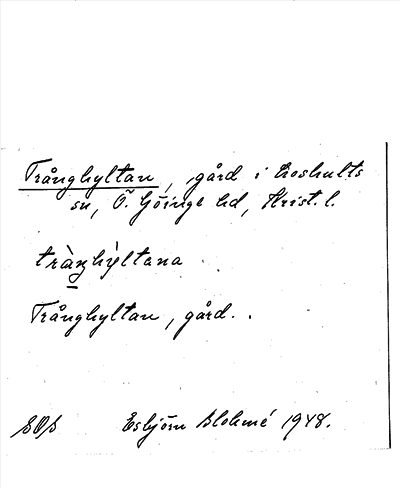 Trånghyltan, gård i Loshults
sn, Ö. Göinge hd, Krist. l.
tràŋhỳltana
Trånghyltan, gård.
SOS Esbjörn Blohmé 1948.